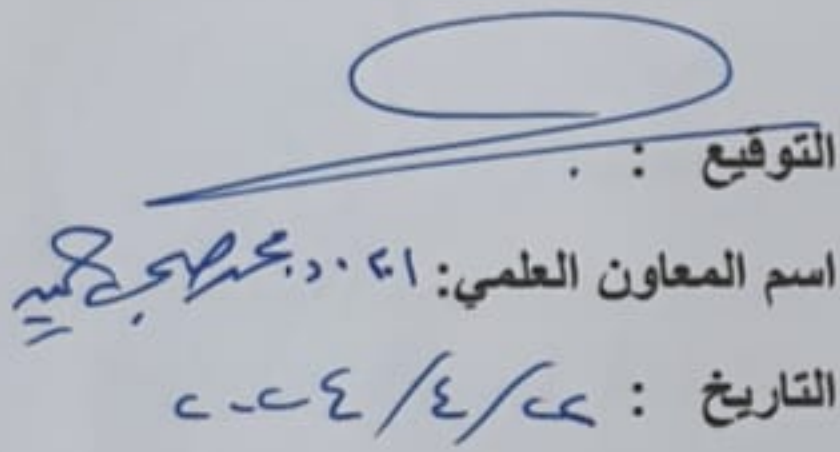 التوقيع :
اسم المعاون العلمي: ا.م.د. محمد صبحي حميد
التاريخ : ٢٢/٤/٢٠٢٤